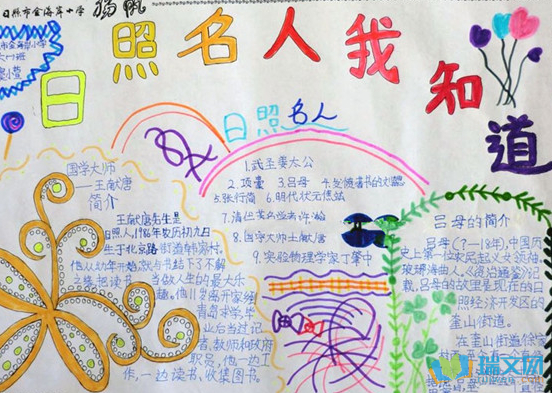 日照市金海岸小学
杨帆
日照名人我知道
日照名人
1.武圣姜太公
2.项橐 3.吕母
5.张行简 6.明代状元焦竑
8.国学大师王献唐
9.实验物理学家丁肇中
国学大师
——王献唐
简介
王献唐先生是
日照人,1986年农历初九日
生于北京路街道韩家村。
他从幼年开始就与书结下了不解
把读书当做人生的最大乐
趣。他11岁离开家乡到
青岛求学,毕
业后当过记
者,教师和政府
职员,他一边工
作,一边读书、收集图书。
吕母的简介
吕母(?—18年),中国历
史上第一位农民起义女领袖,
琅琊海曲人。《资治通鉴》记
载,吕母的故里是现在的日
照经济开发区的
奎山街道。
在奎山街道徐家
瑞文网